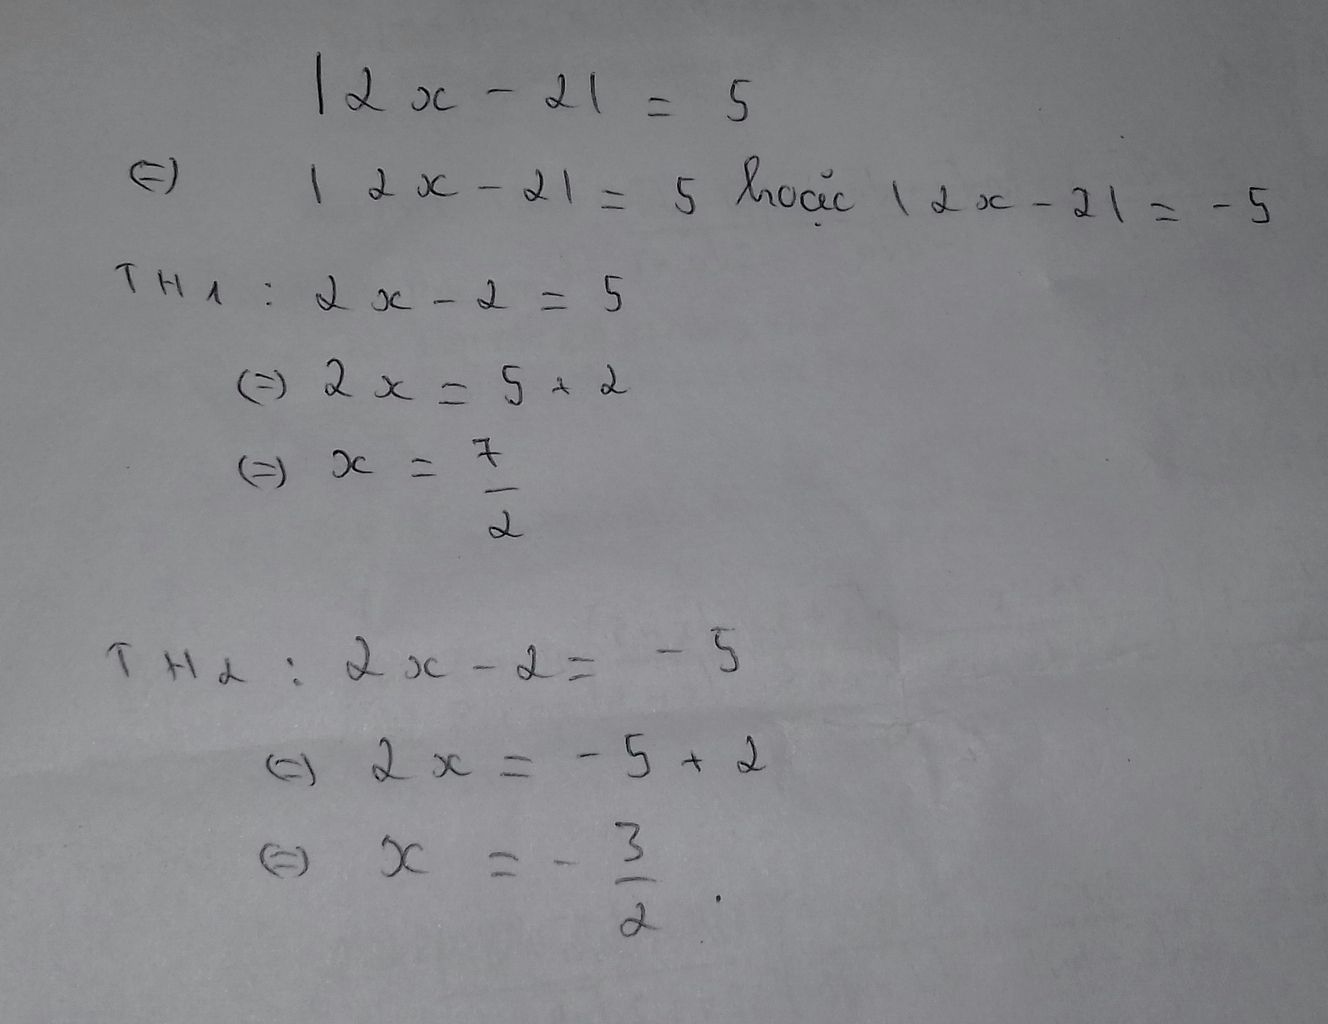 |2x - 2| = 5
(=) |2x - 2| = 5 hoặc |2x - 2| = -5
TH1 : 2x - 2 = 5
(=) 2x = 5 + 2
(=) x = 7/2
TH2 : 2x - 2 = -5
(=) 2x = -5 + 2
(=) x = -3/2.